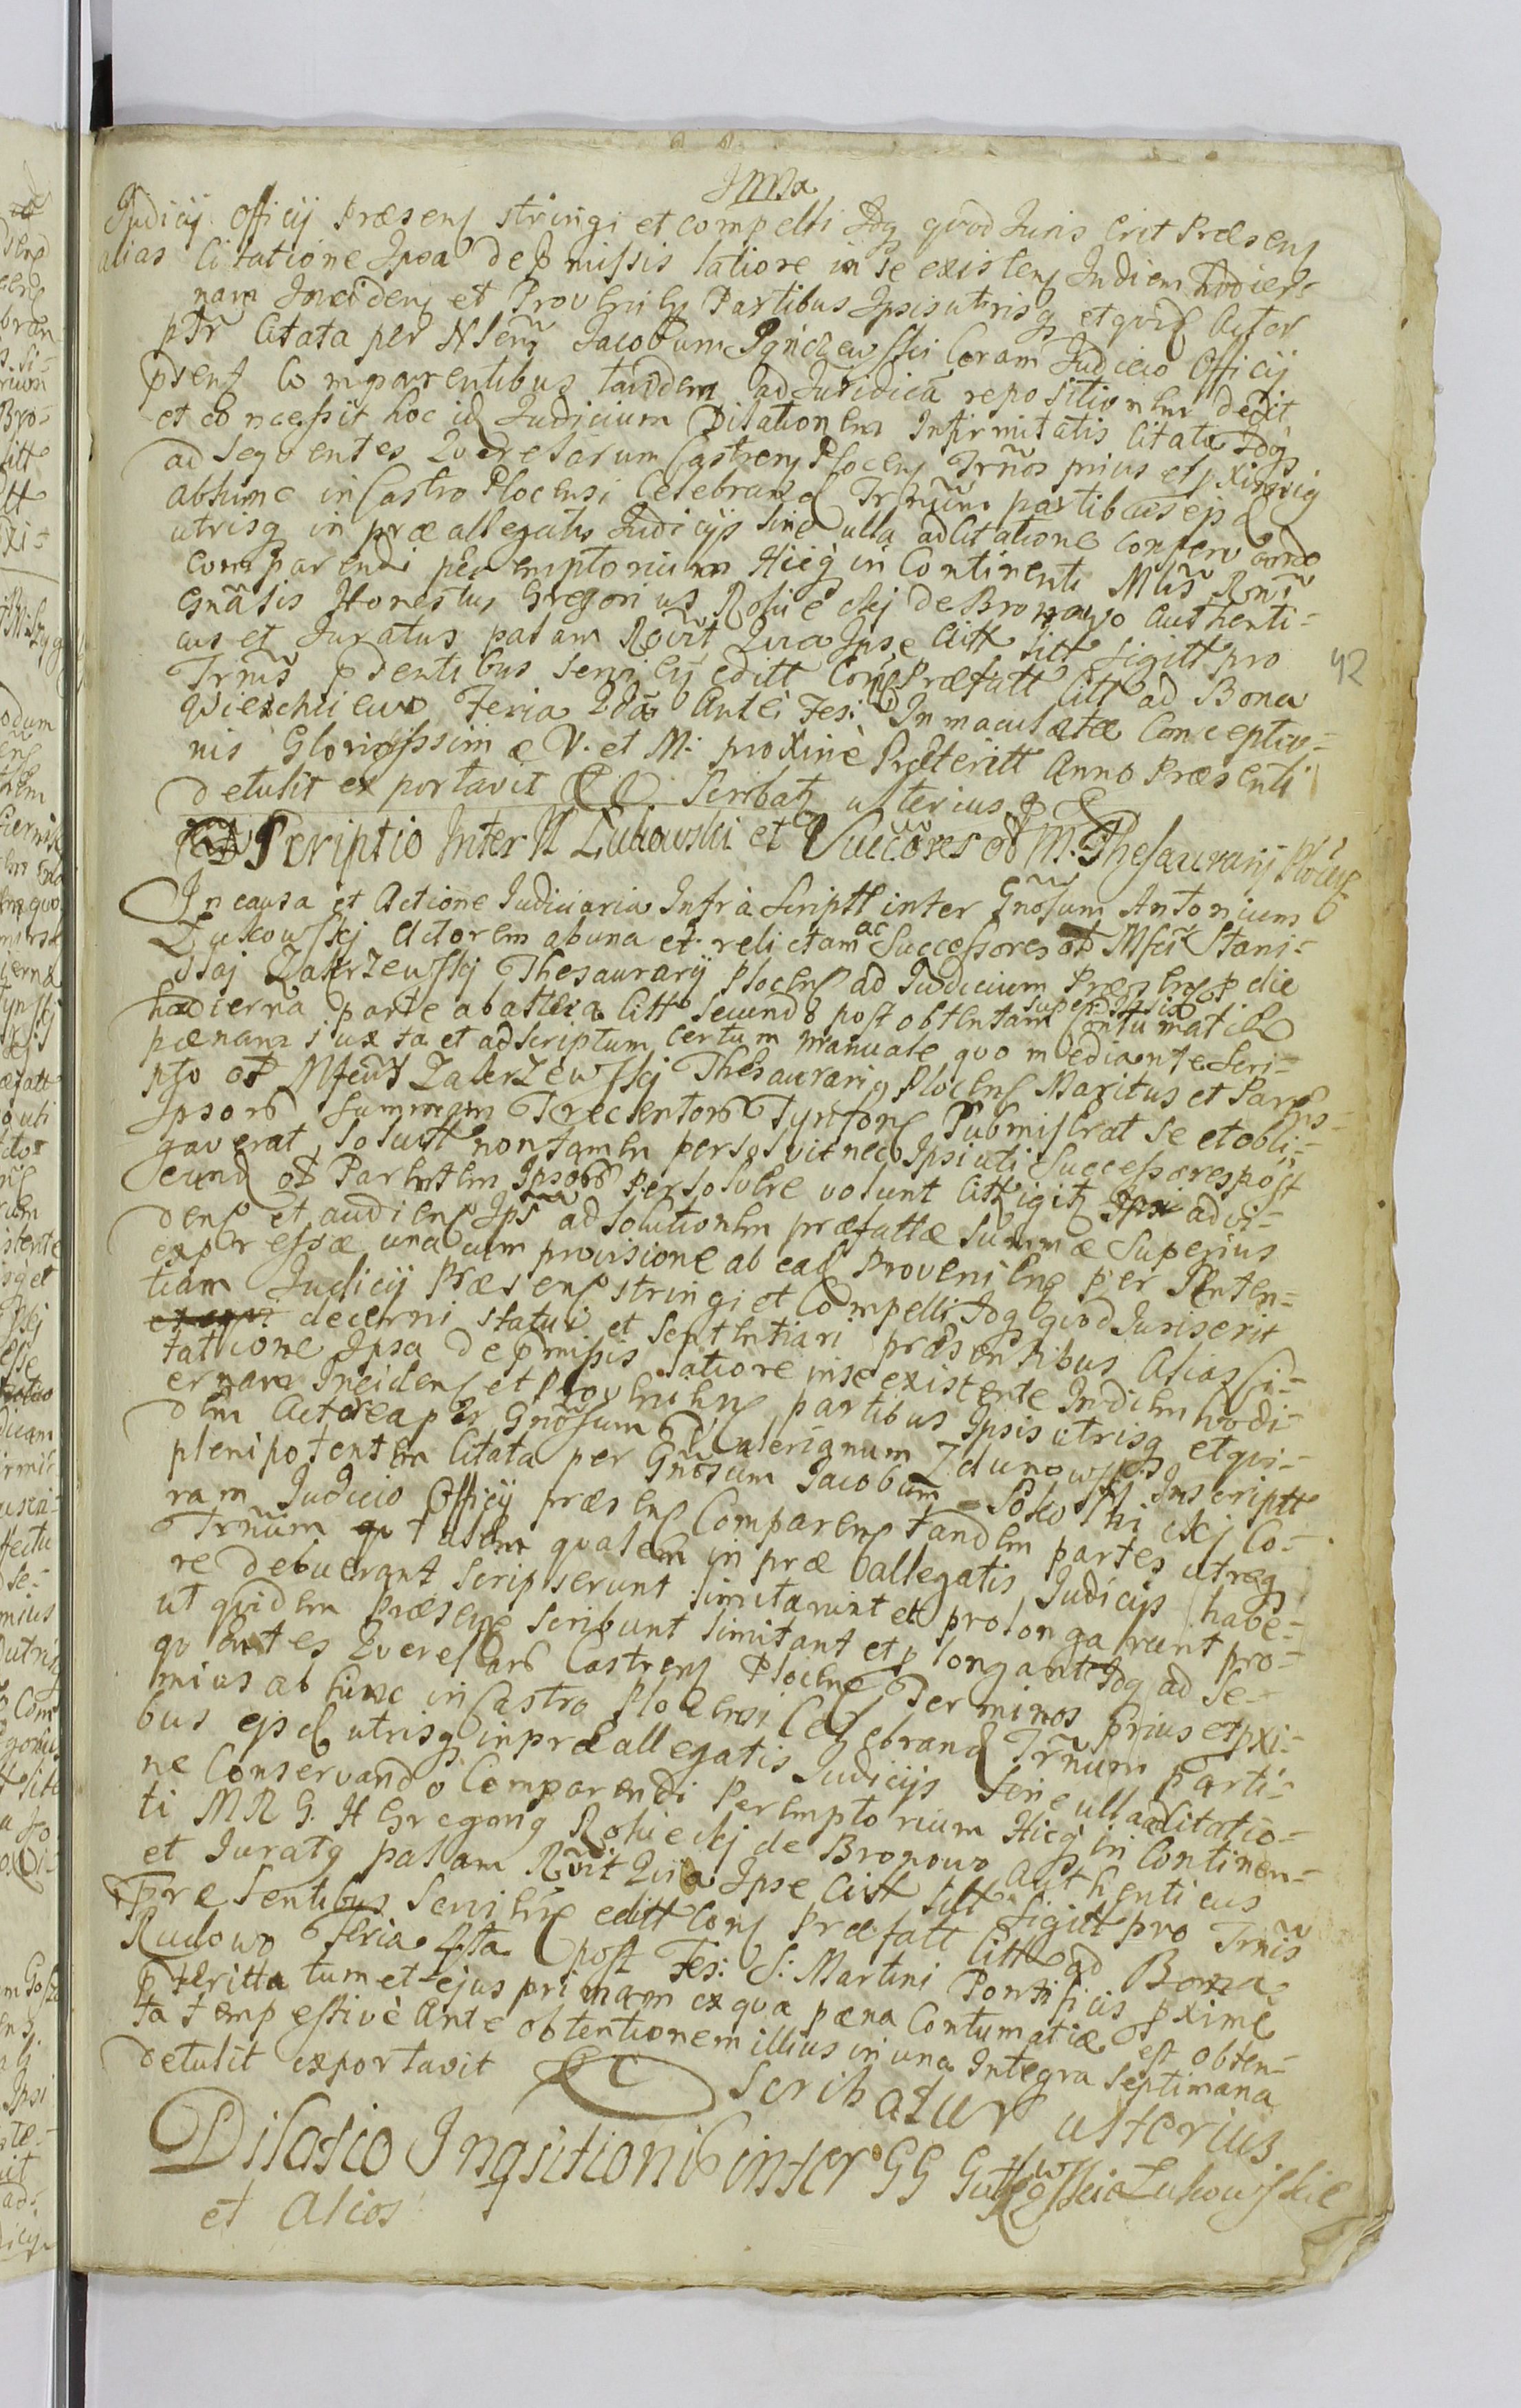 Judicij Officij Præsens stringi et compelli Idq quod Juris erit Præsens
alias Citatione Ipsa de præmissis latiore in se existens Indiem hodier-
nam Incidens et Proveniens Partibus Ipsis utrisq et quid Actor
citata per Jacobum coram Judicio Officij
præsens Comparentibus tandem ad Juridica repositionem dedit
et concessit hoc id Judicium Dilationem Infirmitatis Citatæ Idq
ad Sequentes Querelarum Castrens Plocens Trnos prius et pximig
abhinc in Castro Plocensi Celebrand Trnum partibus ejsd
utrisq in præallegatis Judicijs sine ulla adcitatione conservando
comparendi peremptorium Hicq in Continenti Mius Rnis
Gnalis Honestus Gregorius Rokickj de Bronowo Authenti-
cus et Juratus palam Rovit Quia Ipse Citt litt Sigitt pro
Trnis præsentibus Servien editt Cons Præfatt Citt ad Bona
Feria 2da Ante Fes: Inmaculatæ Conceptio-
nis Gloriosissimæ V. et M: proxime Præteritt Anno Præsenti
detulit exportavit Scribatz ulterius
42
Scriptio Inter N Lukowski et Succõres od M. Thesaurarij Plocens
In causa et Actione Judiciaria Infra Scriptt inter Gnosum Antonium
Lukowskj Actorem ab una et relictam ac Successores od Mfci Stani-
slaj Zakrzewskj Thesaurarij Plocens ad Judicium Præsens p die
hodierna parte ab altera Citt Secundo post obtentam super Ipsis Contumatiæ
pænam juxta et adscriptum certum manuale quo mediante Scri-
pto od Mfcus Zakrzewskj Thesaurarig Plocens Maritus et Parens
Ipsorb Summam Trecentorb Tynfons Submiserat se et obli-
gaverat, Solvitt non tamen persolvit nec Ipsi uti Successores post
eund od Parentem Ipsorb persolvere volunt Citt igitz Ipsi advi-
dens et audiens Ips ad Solutionem præfattæ Summæ Superius
expressæ una cum provisione ab ead Proveniens per Senten-
tiam Judicij Præsens stringi et Compelli Idq quod Juris erit
decerni statui et Sententiari præsentibus Alias Ci-
tatione Ipsa de præmissis latiore in se existente Indiem hodi-
ernam Incidens et Proveniens partibus Ipsis utrisq et qui-
dem Actorea per Gnosum Valerianum Zdunowskj Inscriptt
plenipotentem Citata per Gnosum Jacobum Co-
ram Judicio Officij præsens Comparens tandem partes utræq
Trnum talem qualem in præallegatis Judicijs habe-
re debuerant Scripserunt limitarunt et prolongarunt pro-
ut quidem præsens Scribunt limitant et plongant Idq ad Se-
quentes Querelarb Castrens Plocens Terminos prius et pxi-
mius ab hinc in Castro Plocensi Celebrand Trnum Parti-
bus ejsd utrisq in præallegatis Judicijs sine ulla adcitatio-
ne Conservando Comparendi Peremptorium Hicq in Continen-
ti M R G. H Gregorig Rokickj de Bronowo Authenticus
et Juratg palam Rovit Quia Ipse Citt litt Sigitt pro Trnis
Præsentibus Servien editt Cons Præfatt Citt ad Bona
Rudowo Feria 4ta post Fes: S: Martini Pontificis pxime
præteritta tum et ejus primam ex qua pæna Contumatiæ est obten-
ta tempestivè Ante obtentionem illius in una Integra Septimana
detulit exportavit Scribatur ulterius
Dilatio Inqsitionis inter GG Lukowskie
et Alios